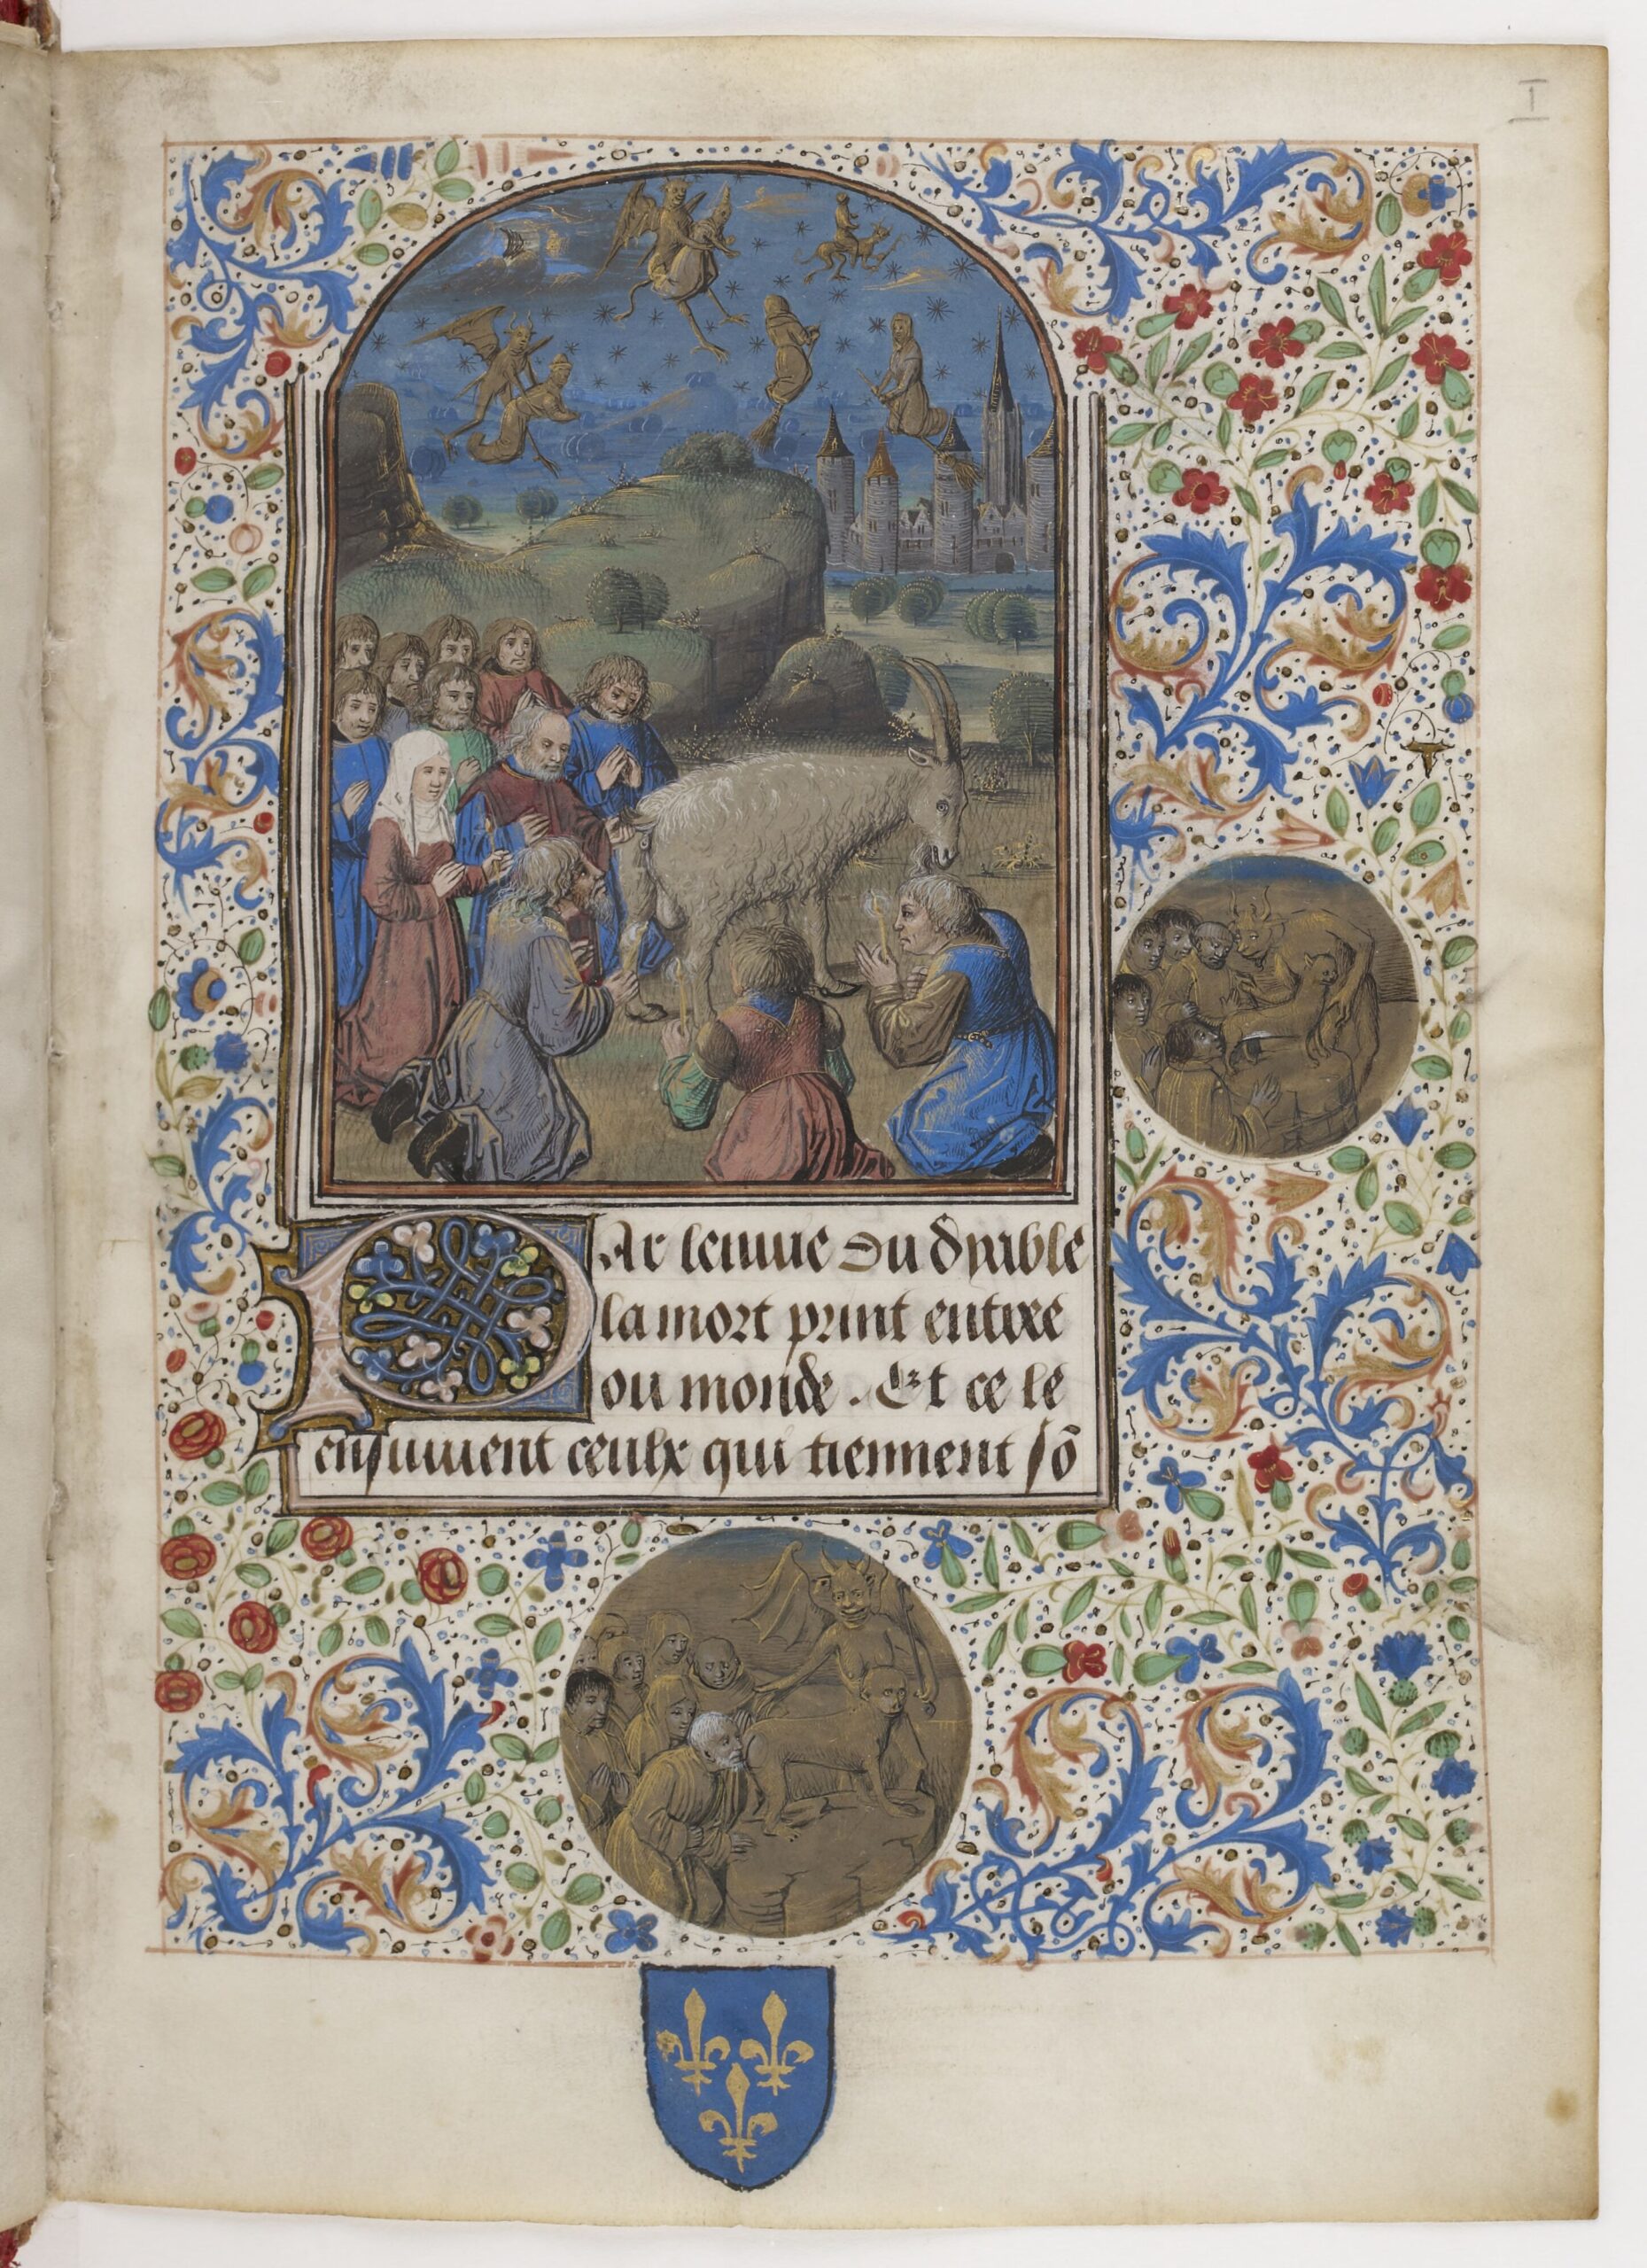 I
PAr lenuie du dyable
la mort print entree
ou monde. Et ce le
ensuiuent ceulx qui tiennent sõ